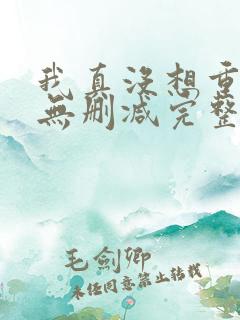 我真没想重
無删减完整
毛劍卿
未经同意禁止转载